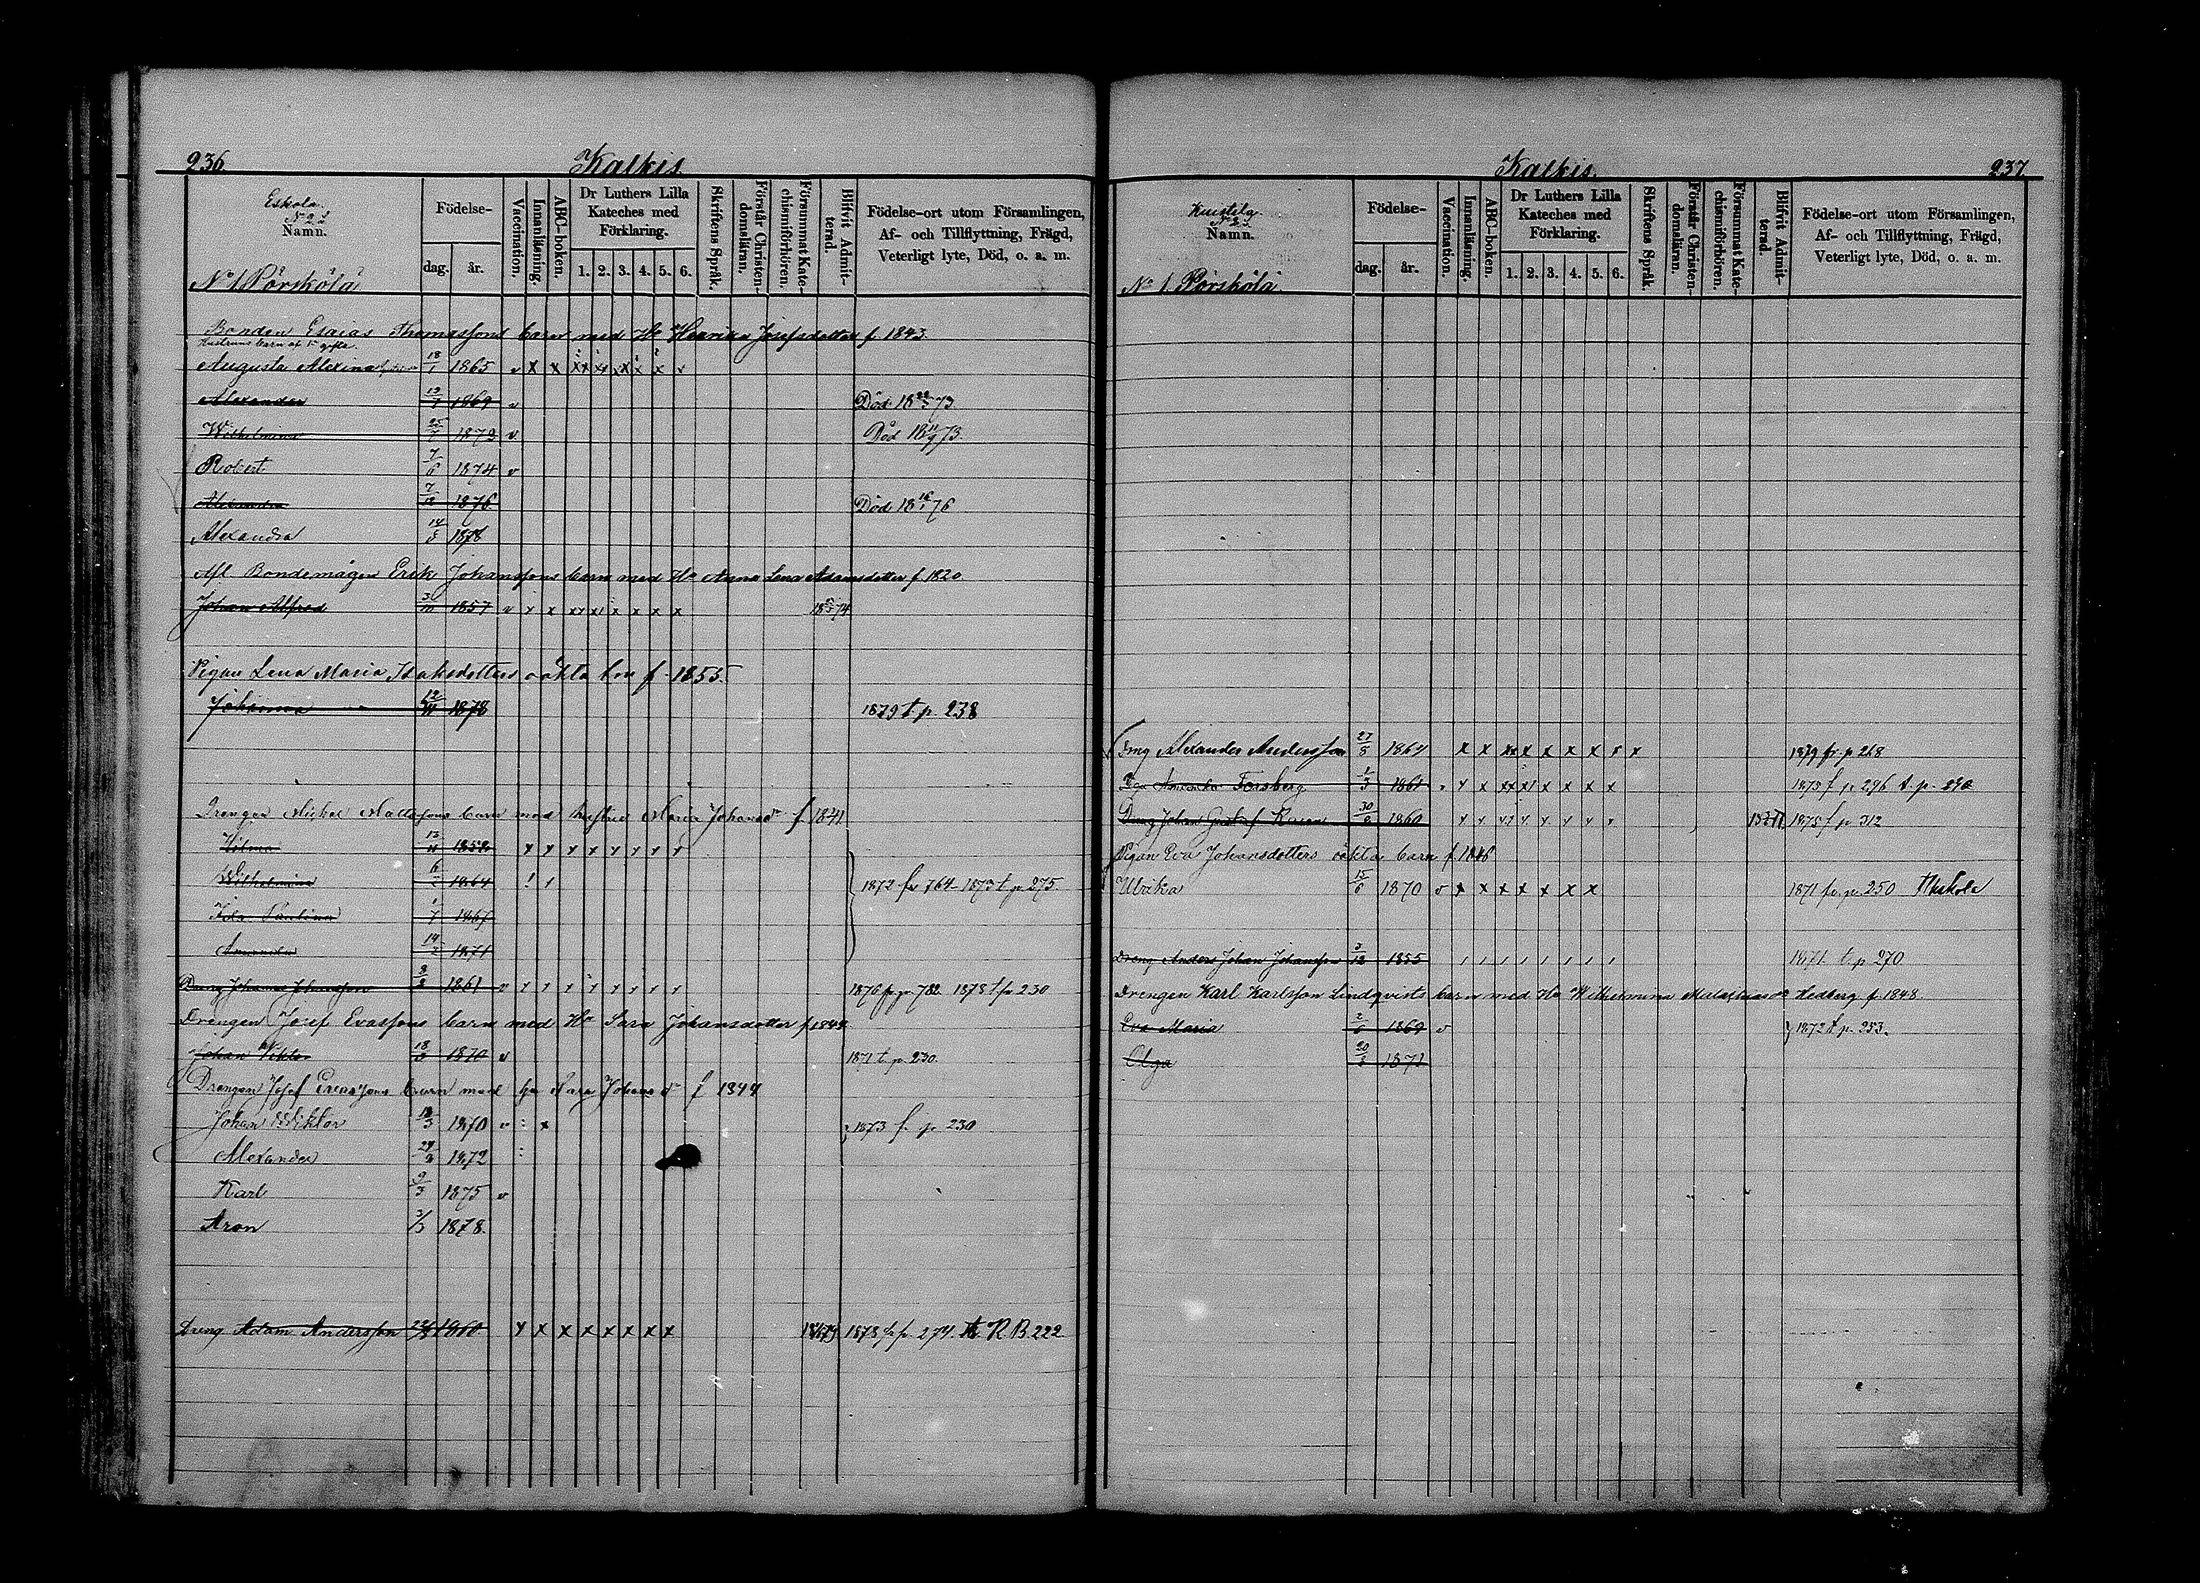 236.
Kalkis.
Eskola.
N:o 2
Namn.
N:o 1 Pörskölä
Födelse-
dag. år.
Vaccination.
Innanläsning.
ABC-boken.
Dr Luthers Lilla
Kateches med
Förklaring.
1. 2. 3. 4. 5. 6.
Skriftens Språk.
Förstår Christen-
domsläran.
Försummat Kate-
chismiförhören.
Blifvit Admit-
terad.
Födelse-ort utom Församlingen,
Af- och Tillflyttning, Frägd,
Veterligt lyte, Död, o. a. m.
Bonden Esaias Thomassons barn med Ho Henrika Josefsdotter f. 1843.
Hustruns barn af 1a gifte.
Augusta Alexina 18/1 1865 v x x xx xx xx x x x
Alexander 1869 v Död 18 73
Wilhelmina 25/7 1872 v. Död 18 11/9 73.
Robert 7/6 1874 v
Alexandra 7/12 1876 Död 18 76
Alexandra 14/5 1878
Afl Bondemågen Erik Johanssons barn med Ho Anna Lena Adamsdotter f. 1820
Johan Alfred 3/10 1857 v x x xx x x x x 18 74
Pigan Lena Maria Isaksdotters oäkta barn f. 1855.
Johanna 12/11 1878 1879 t. p. 238
Drengen Mickel Mattssons barn med hustru Maria Johansdr f. 1841
Hilma 1858 x x x x x x x x
Wilhelmina 1864 1872 fr 764 1873 t. p. 275.
Ida Paulina 1867
Amanda 14/2 1871
Dreng Johannes Johansson 1861 v x x x x x x x x 1876 fr p. 782. 1878 t p 230
Drengen Josef Evassons barn med Ho Sara Johansdotter f. 1844
Johan Viktor 18/3 1870 v 1871 t. p. 230.
Drengen Josef Evassons barn med ho Sara Johansdr f 1844
Johan Wiktor 18/3 1870 v x 1873 f. p. 230
Alexander 1872
Karl 9/3 1875 v
Aron 3/3 1878.
Dreng Adam Andersson 1860 x x x x x x x x 1879 1878 fr p. 274. R B. 222
Kalkis.
237
N:o 23.
Namn.
N:o 1. Pörskölä.
Födelse-
dag. år.
Vaccination.
Innanläsning.
ABC-boken.
Dr Luthers Lilla
Kateches med
Förklaring.
1. 2. 3. 4. 5. 6.
Skriftens Språk.
Förstår Christen-
domsläran.
Försummat Kate-
chismiförhören.
Blifvit Admit-
terad.
Födelse-ort utom Församlingen,
Af- och Tillflyttning, Frägd,
Veterligt lyte, Död, o. a. m.
Dreng Alexander Andersson 27/8 1864 x x xx x x x x x x 1879 fr. p 268
Forsberg 1/3 1861 x x xx x x x x x 1875 f p 296 t. p. 290
Dreng Johan Gustaf 1860 x x x x x x x x 1875 f p 312
Pigan Eva Johansdotters oäkta barn f. 1846
Ulrika 15/6 1870 v x x x x x x x 1871 fr. p. 250
Dreng Anders Johan Johansson 3/12 1855 1871 t. p 270
Drengen Karl Karlsson Lindqvists barn med Ho Wilhelmina Hedberg f. 1848.
Eva Maria 2/6 1869 v 1872 t p. 253.
Olga 1871